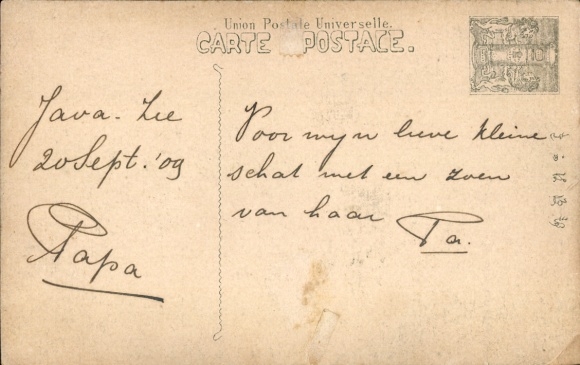 Union Postale Universelle.
CARTE POSTALE.
Java-Zee
20 Sept. '09
Papa
Voor myn lieve kleine
schat met een zoen
van haar Pa.